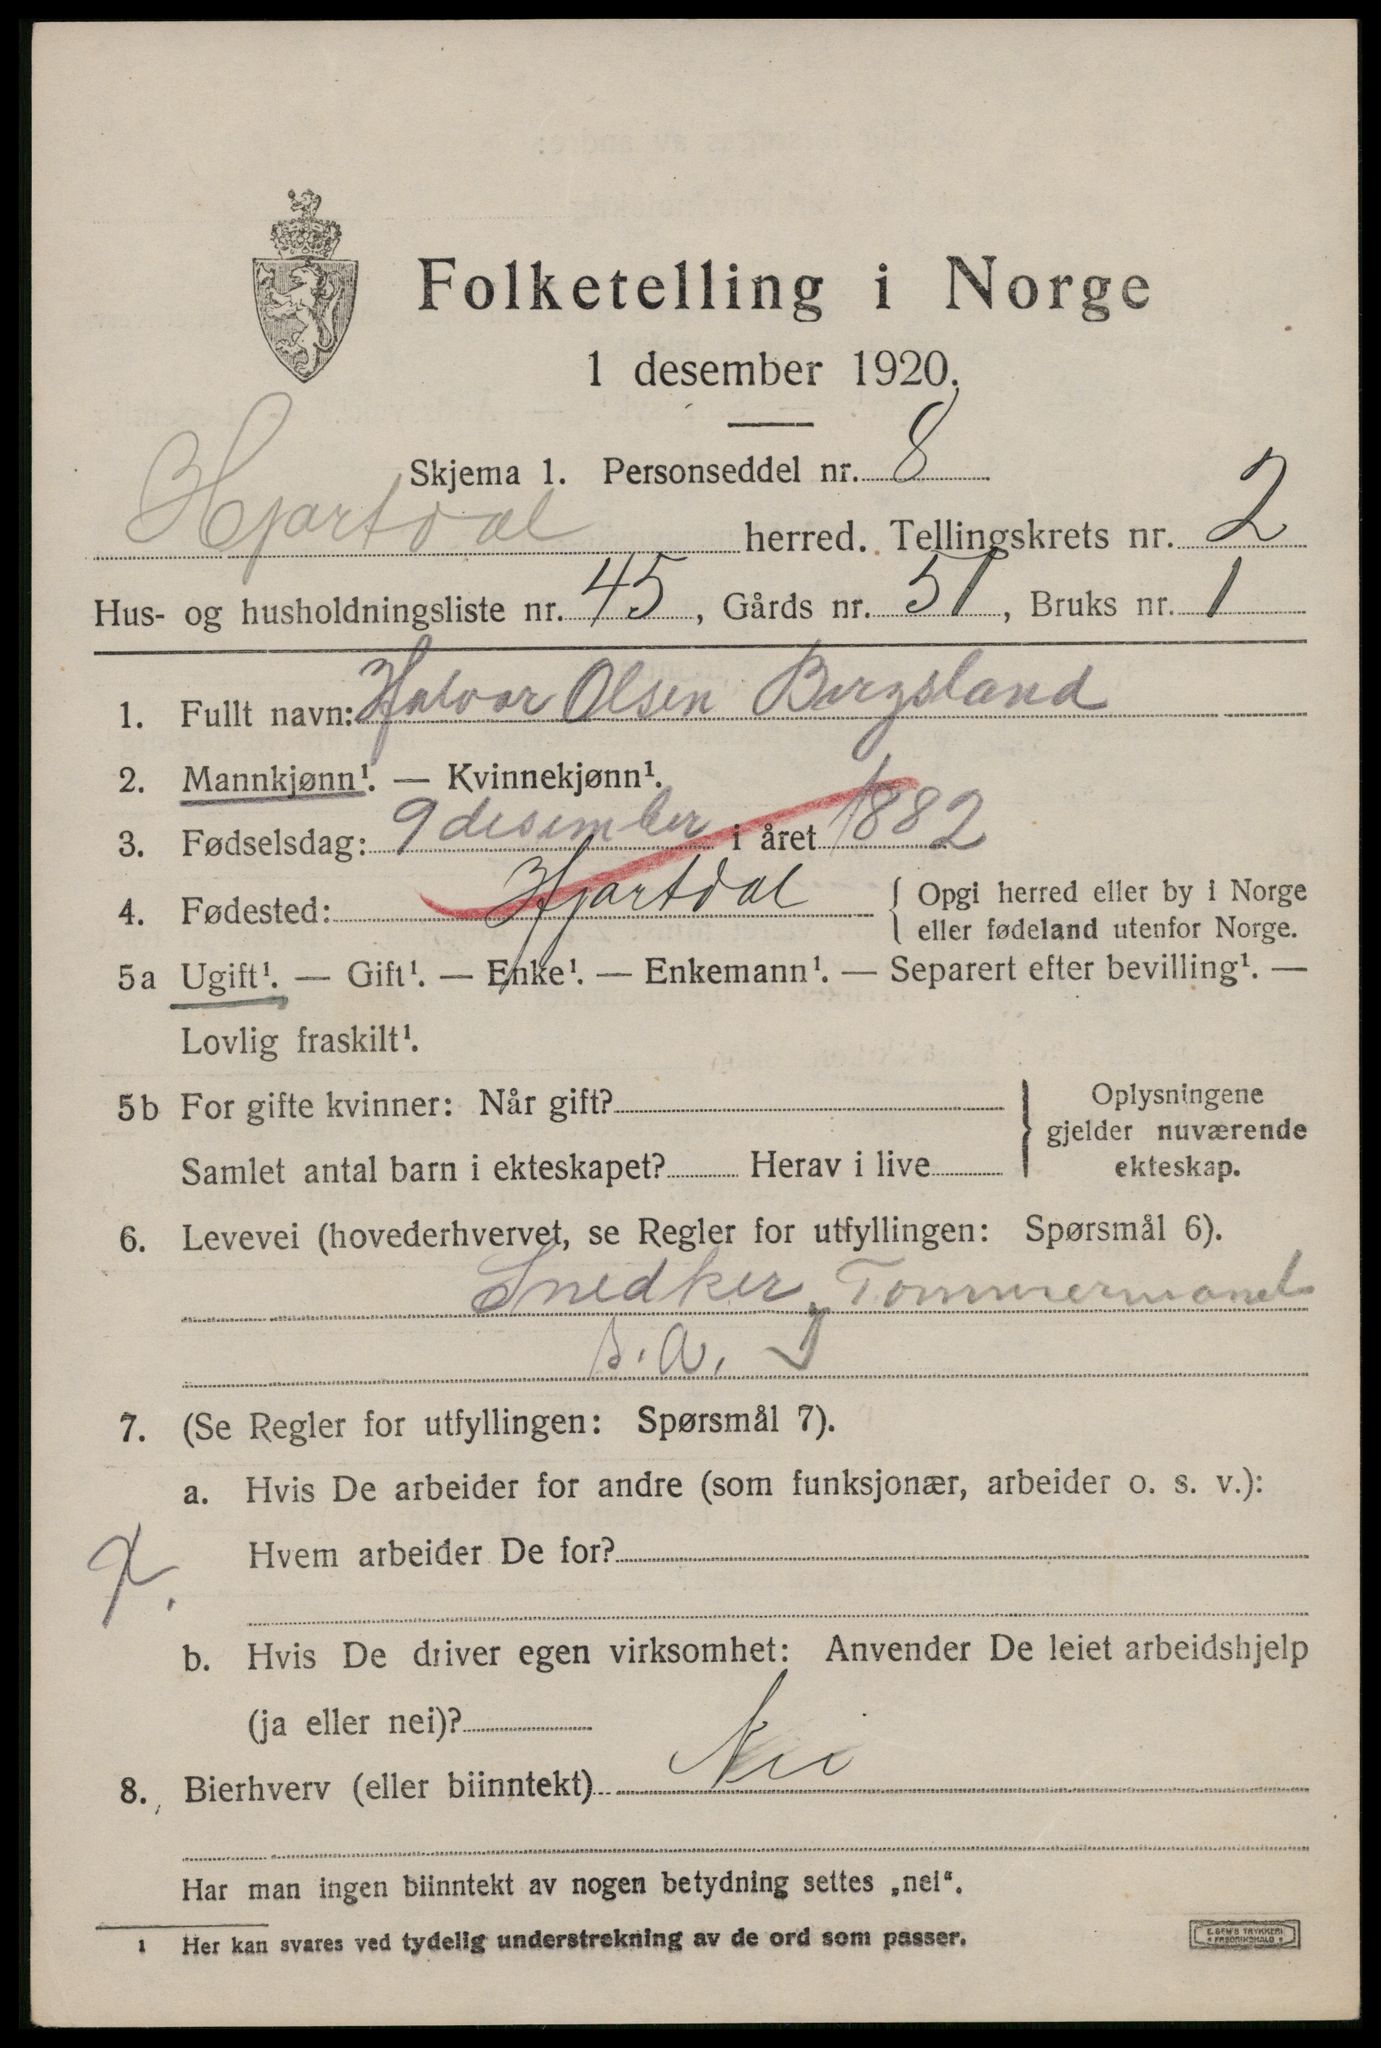 Folketelling i Norge
1 desember 1920.
Skjema 1. Personseddel nr. 8
Hjartdal herred. Tellingskrets nr. 2
Hus- og husholdningsliste nr. 45, Gårds nr. 51, Bruks nr. 1
1. Fullt navn: Halvor Olsen Bergsland
2. Mannkjønn¹. — Kvinnekjønn¹.
3. Fødselsdag: 9 desember i året 1882
4. Fødested: Hjartdal { Opgi herred eller by i Norge
eller fødeland utenfor Norge.
5a Ugift¹. — Gift¹. — Enke¹. — Enkemann¹. — Separert efter bevilling¹. —
Lovlig fraskilt¹.
5b For gifte kvinner: Når gift? } Oplysningene
gjelder nuværende
Samlet antal barn i ekteskapet? Herav i live ekteskap.
6. Levevei (hovederhvervet, se Regler for utfyllingen: Spørsmål 6).
Snedker, Tømmermand
s.a.
7. (Se Regler for utfyllingen: Spørsmål 7).
a. Hvis De arbeider for andre (som funksjonær, arbeider o. s. v.):
Hvem arbeider De for?
b. Hvis De driver egen virksomhet: Anvender De leiet arbeidshjelp
(ja eller nei)?
8. Bierhverv (eller biinntekt) Nei
Har man ingen biinntekt av nogen betydning settes „nei“.
1 Her kan svares ved tydelig understrekning av de ord som passer.
E. SEM'S TRYKKERI
FREDRIKSHALD